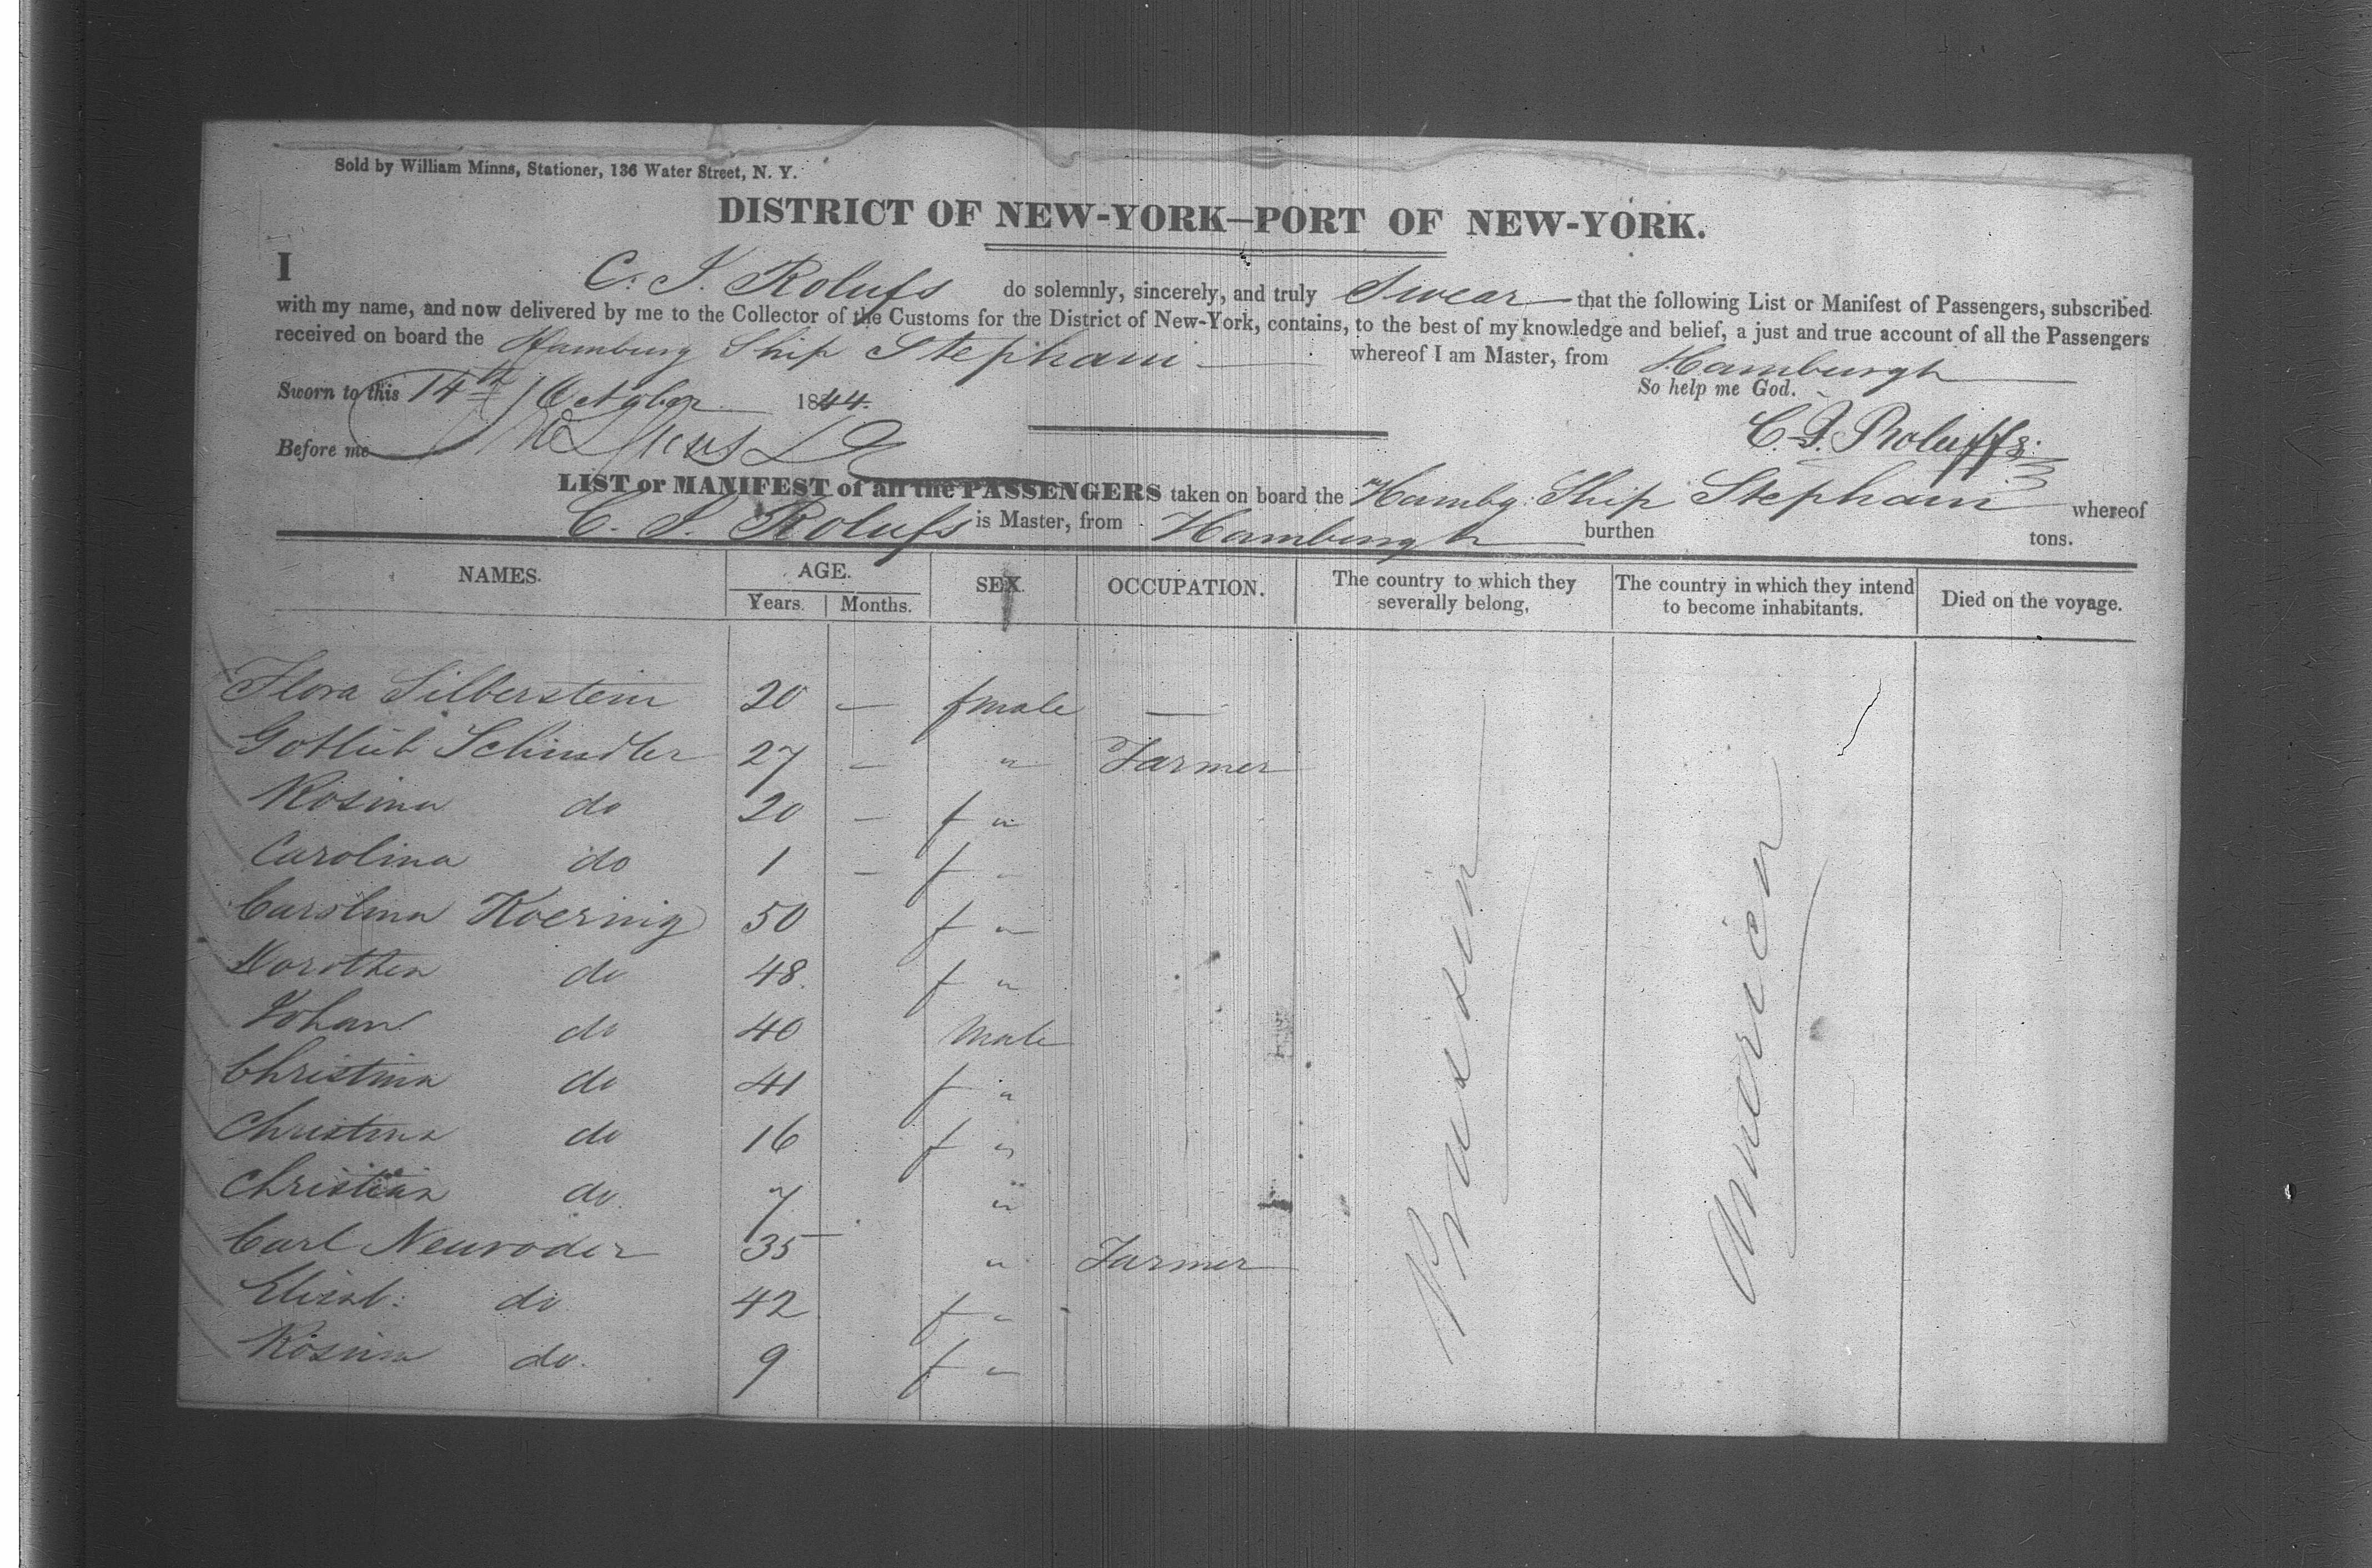 Sold by William Minns, Stationer, 136 Water Street, N. Y.
DISTRICT OF NEW-YORK—PORT OF NEW-YORK.
I C. J. Rolufs do solemnly, sincerely, and truly Swear that the following List or Manifest of Passengers, subscribed
with my name, and now delivered by me to the Collector of the Customs for the District of New-York, contains, to the best of my knowledge and belief, a just and true account of all the Passengers
received on board the Hamburg Ship Stephani whereof I am Master, from Hamburgh
Sworn to this 14th October 1844. So help me God.
Before me C. J. Roluffs
LIST or MANIFEST of all the PASSENGERS taken on board the Hambg. Ship Stephani whereof
C. J. Rolufs is Master, from Hamburgh burthen tons.
NAMES. AGE. SEX. OCCUPATION. The country to which they severally belong, The country in which they intend to become inhabitants. Died on the voyage.
Years. Months.
Flora Silberstein 20 — female —
Gottlieb Schindler 27 — " Farmer
Rosina do 20 — f "
Carolina do 1 — f "
Carolina Koernig 50 f "
Dorothea do 48. f "
Johan do 40 Male
Christina do 41 f "
Christina do 16 f "
Christian do. 7 "
Carl Neuroder 35 " Farmer
Elisab: do 42 f "
Rosina do. 9 f "
America